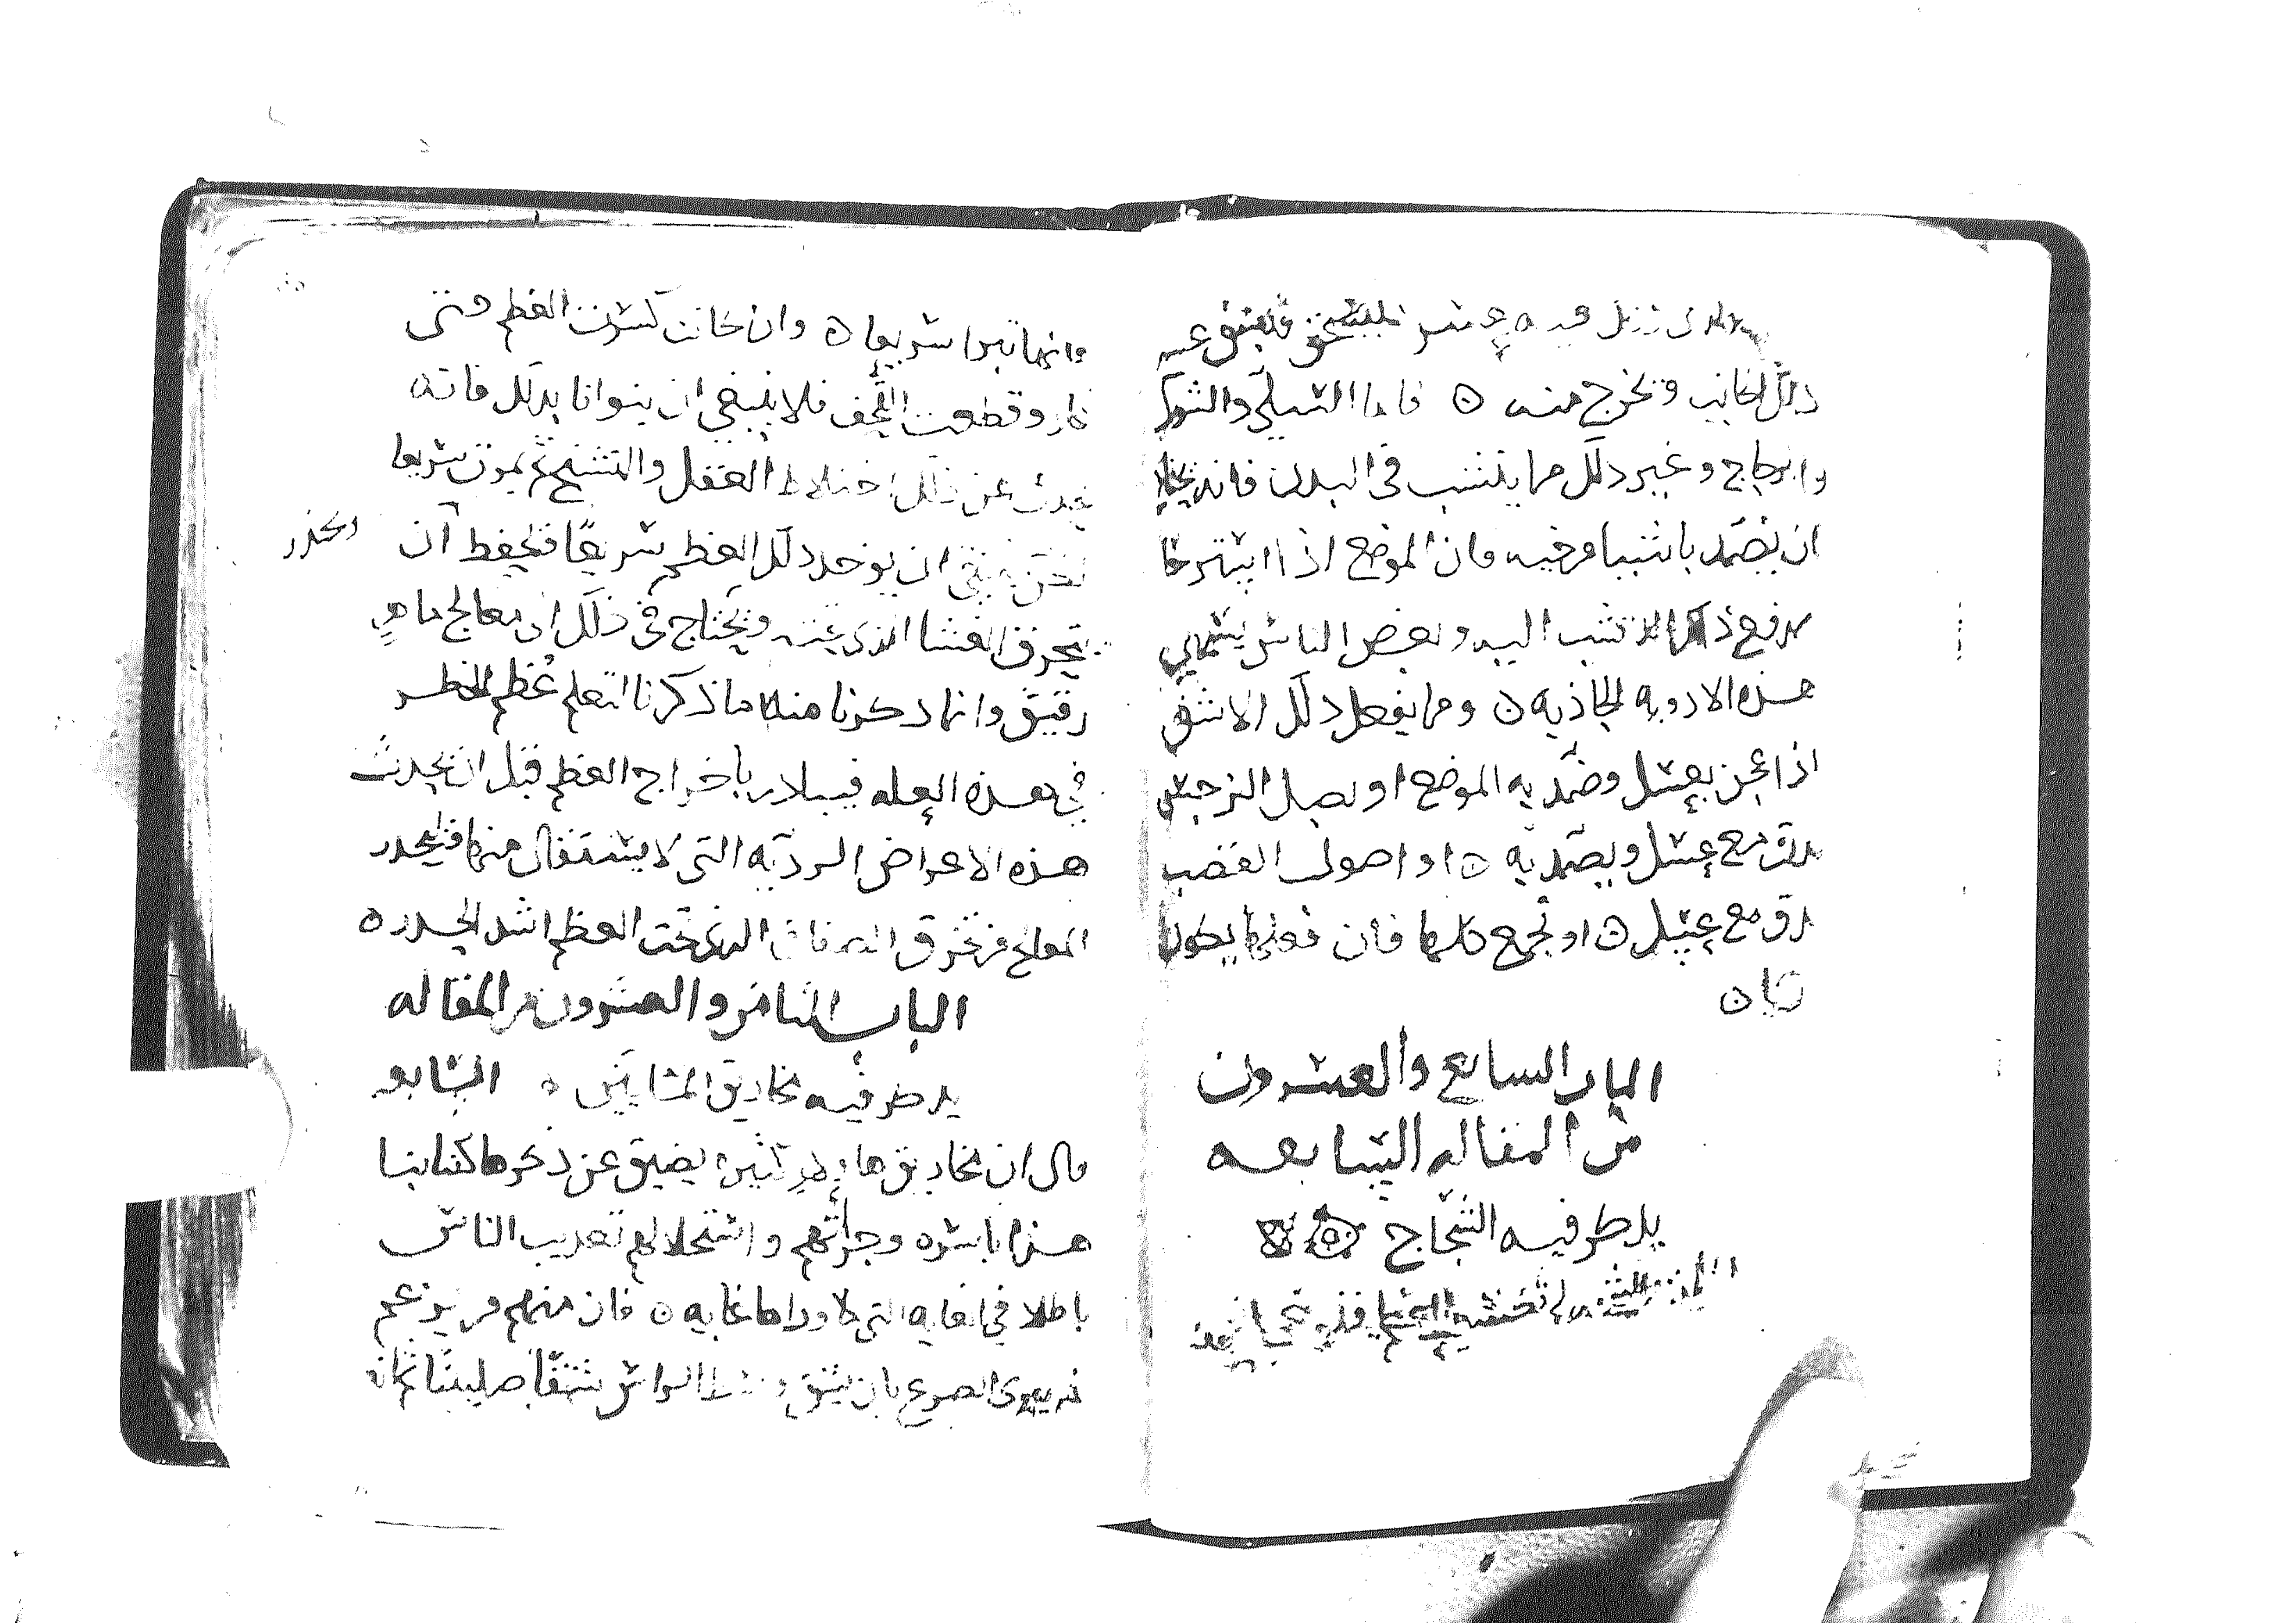 ذلك الجانب وتخرج منه ه فاما السلي والشوك
والزجاج وغير ذلك مما ينشب في البدن فانه يحتاج
ان يضمد باشيا مرخيه فان الموضع اذا استرخا
دفع ذلك الناشب اليه وبعض الناس يسمي
هذه الادويه الجاذبه ه ومما يفعل ذلك الاشق
اذا عجن بعسل وضمد به الموضع او بصل النرجس
يدق مع عسل ويضمد به ه او اصول القصب
يدق مع عسل ه او تجمع كلها فان فعلها يكون
الباب السابع والعشرون
من المقاله السابعه
يذكر فيه الشجاج
وانها تبرا سريعا ه وان كانت كسرت العظم حتى
وقطعت القحف فلا ينبغي ان يتوانا بذلك فانه
يحدث عن ذلك اختلاط العقل والتشنج ثم يموت سريعا
ينبغي ان يوخذ ذلك العظم سريعًا فليحفظ ان
وليحذر
يخرق الغشا الذي تحته ويحتاج في ذلك الى معالج ماهر
رقيق وانما ذكرنا منه ما ذكرنا لتعلم عُظم الخطر
في هذه العله فيبادر باخراج العظم قبل ان يحدث
هذه الاعراض الرديه التي لا يستقال منها فليحذر
المعالج من خرق الصفاق الذي تحت العظم اشد الحذر ه
الباب الثامن والعشرون من المقاله
السابعه
يذكر فيه مخاريق المشايين ه
قال ان مخاريق هاولاء كثيره يضيق عن ذكرها كتابنا
هذا باسره وجرأتهم واستحلالهم تعذيب الناس
باطلا في الغايه التي لا وراها غايه ه فان منهم من يزعم
انه يبرى الصرع بان يشق وسط الراس شقًا صليبيًا ثم انه